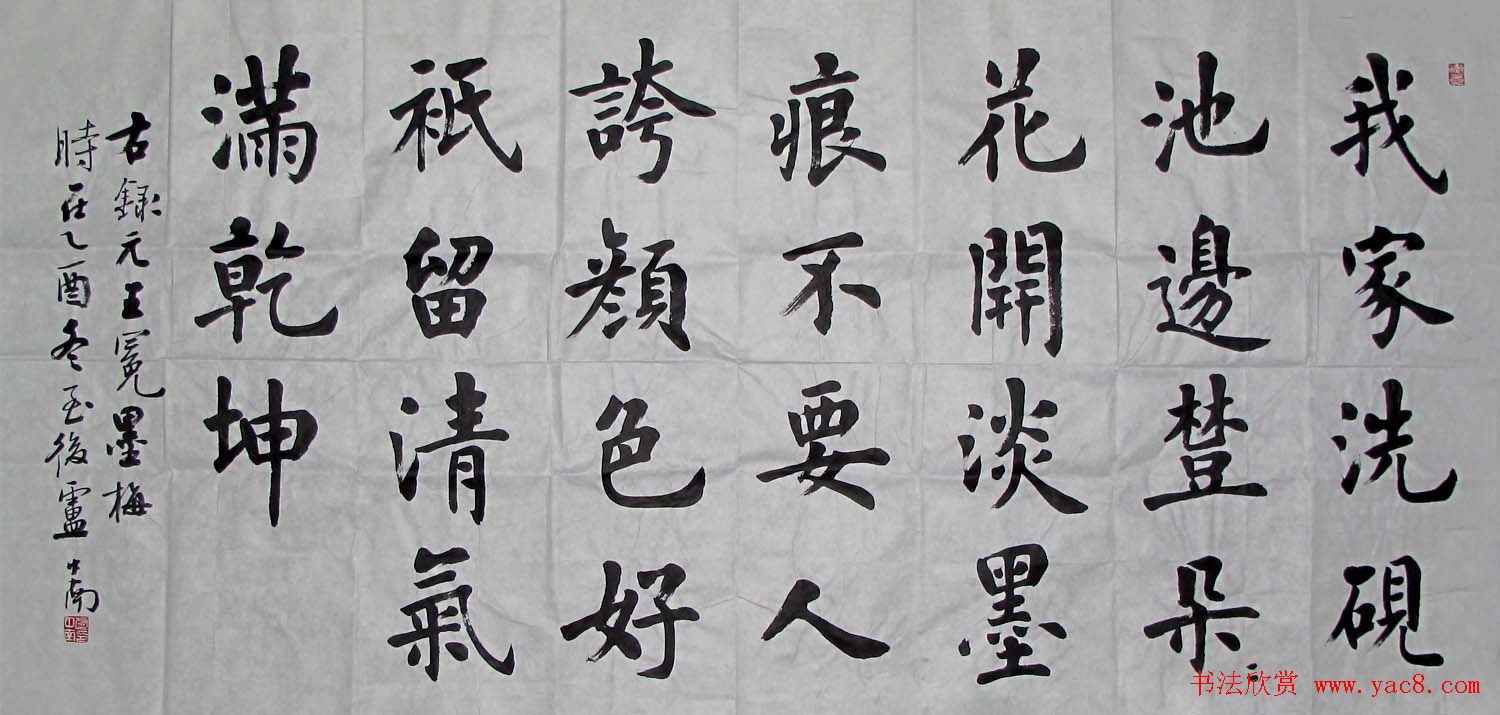 我家洗硯
池邊樹朵〻
花開淡墨
痕不要人
誇顏色好
祇留清氣
滿乾坤
右錄元王冕墨梅
時在乙酉冬至後盧中南
书法欣赏 www.yac8.com